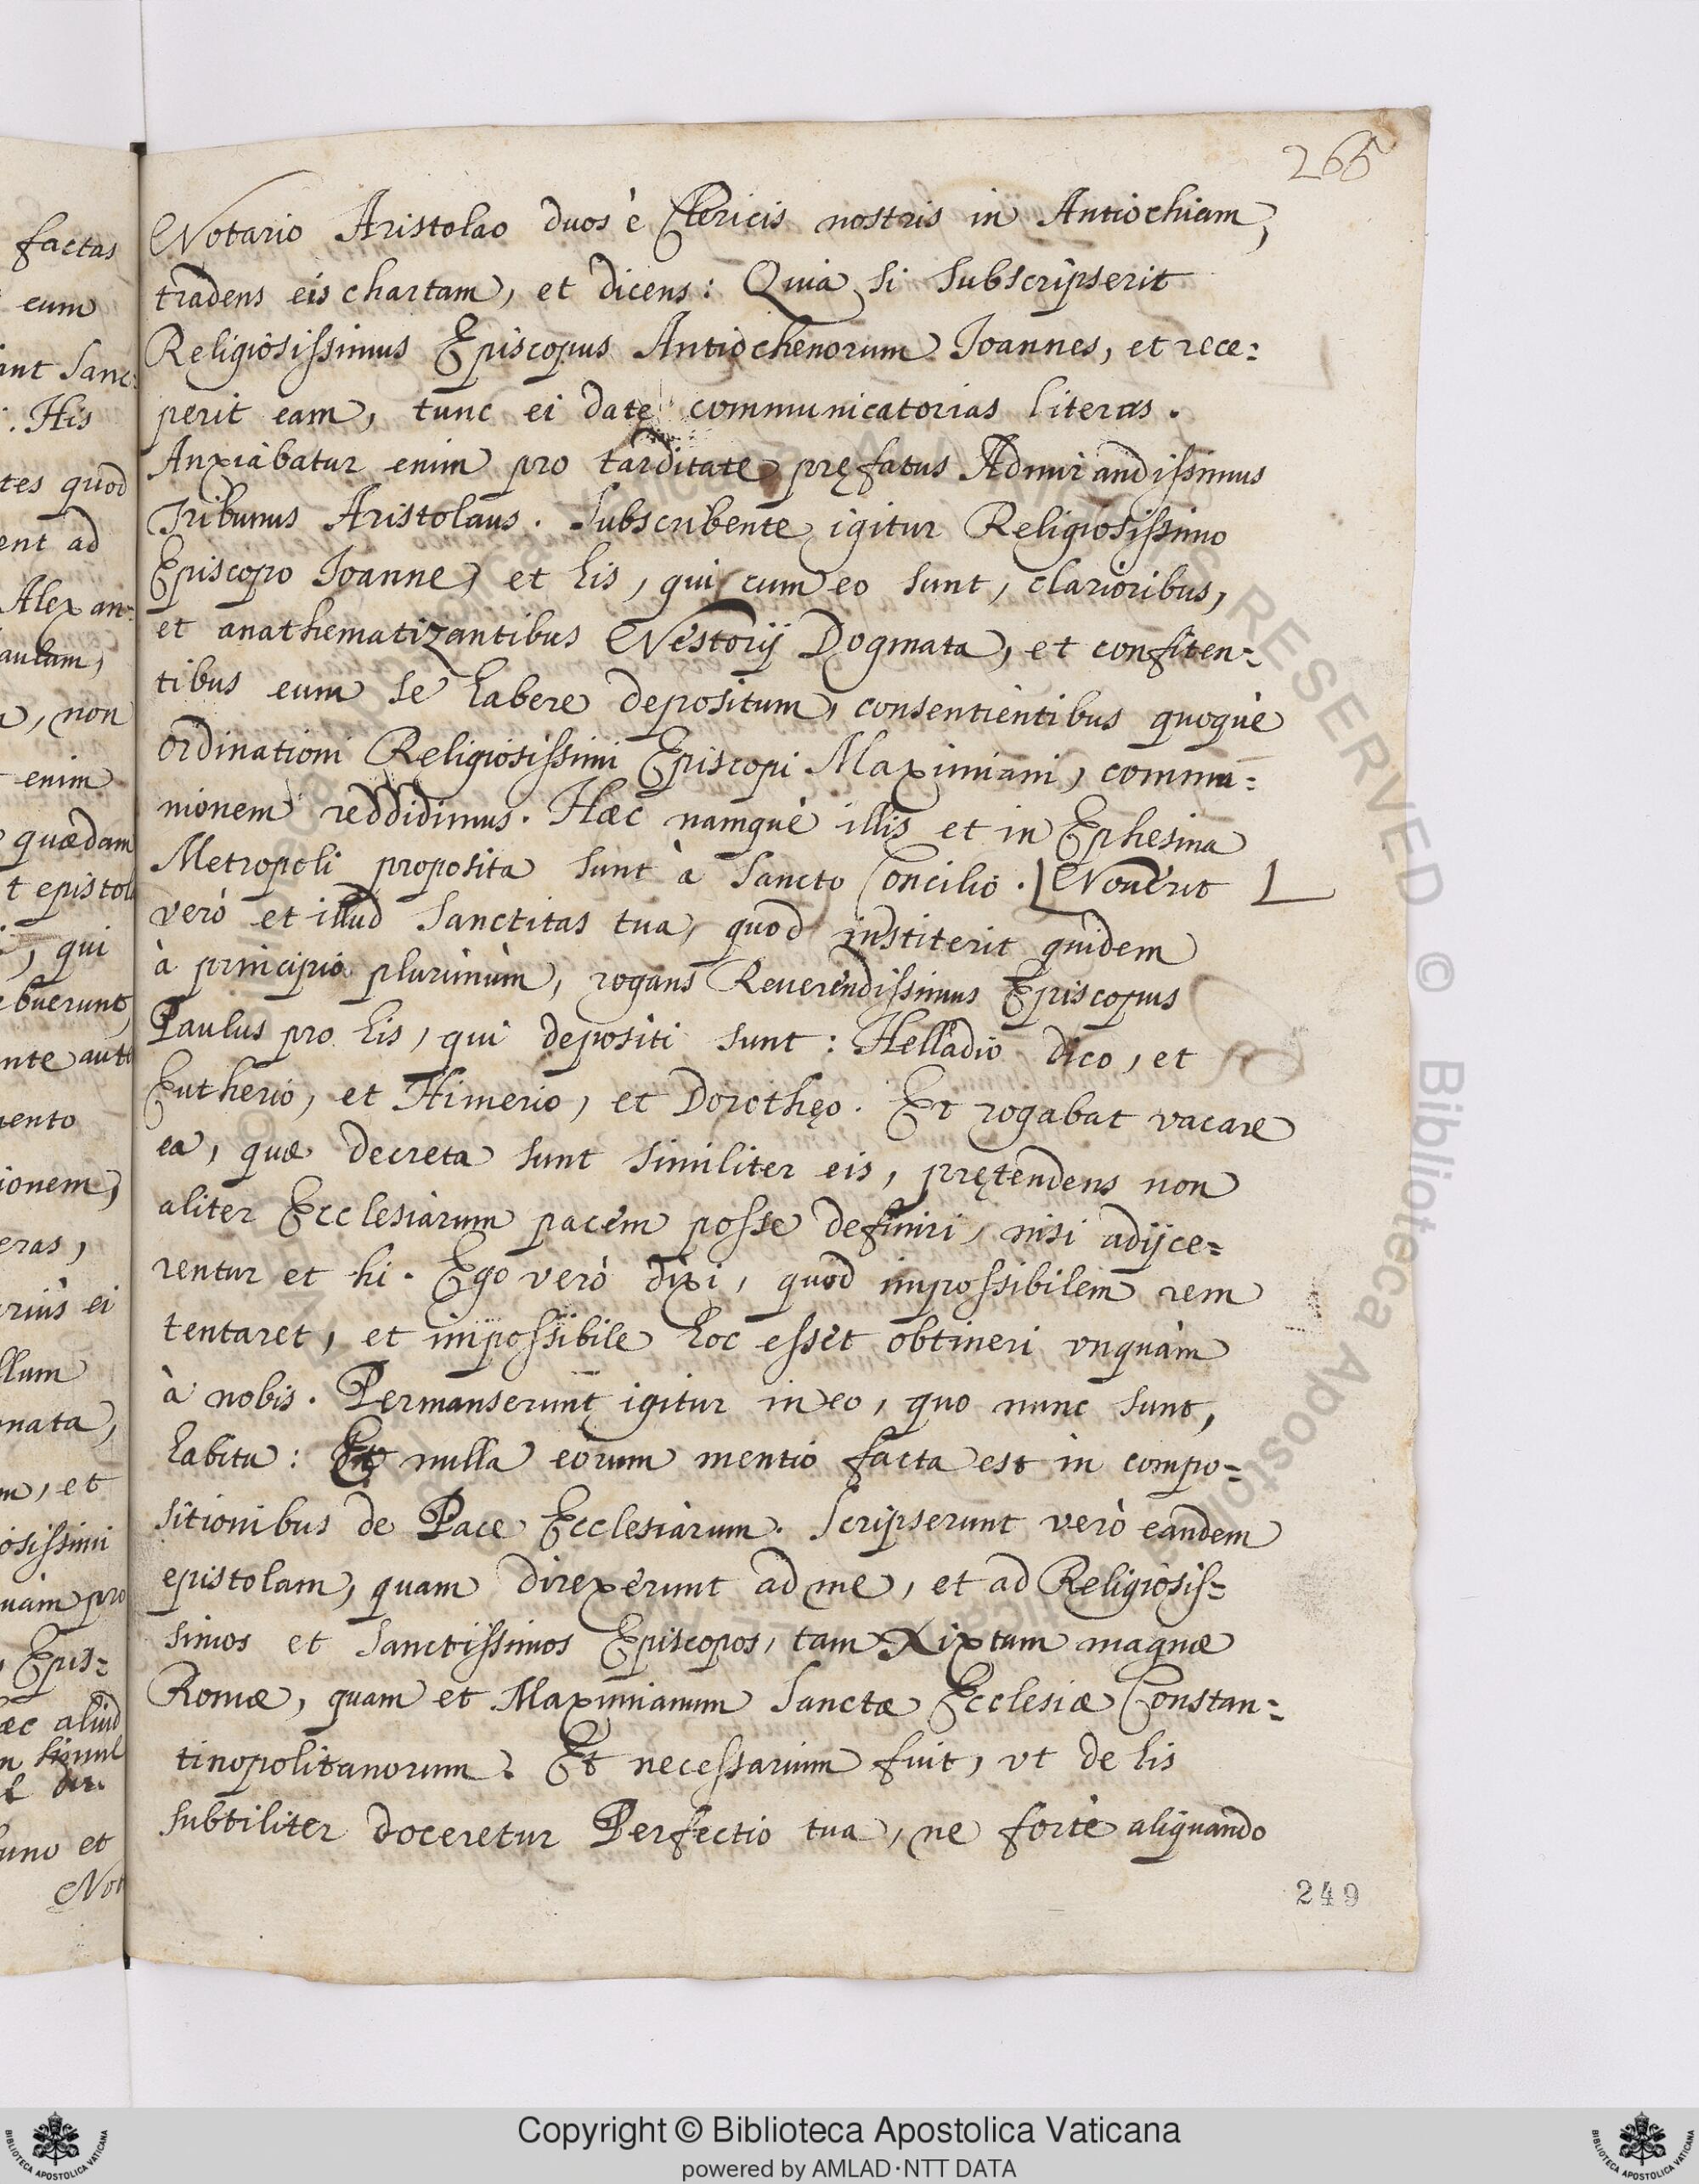 265
Notario Aristolao duos è Clericis nostris in Antiochiam,
tradens eis chartam, et dicens: Quia si subscripserit
Religiosissimus Episcopus Antiochenorum Ioannes, et rece=
perit eam, tunc ei date communicatorias literas.
Anxiabatur enim pro tarditate pręfatus Admirandissimus
Tribunus Aristolaus. Subscribente igitur Religiosissimo
Episcopo Ioanne, et his, qui cum eo sunt, clarioribus,
et anathematizantibus Nestorij Dogmata, et confiten=
tibus eum se habere depositum, consentientibus quoquè
ordinationi Religiosissimi Episcopi Maximiani, commu=
nionem reddidimus. Hæc namquè illis et in Ephesina
Metropoli proposita sunt à Sancto Concilio. [Nouerit L
verò et illud Sanctitas tua, quod institerit quidem
à principio plurimùm, rogans Reuerendissimus Episcopus
Paulus pro his, qui depositi sunt: Helladio dico, et
Eutherio, et Himerio, et Dorothęo. Et rogabat vacare
ea, quæ decreta sunt similiter eis, prętendens non
aliter Ecclesiarum pacem posse definiri, nisi adijce=
rentur et hi. Ego verò dixi, quod impossibilem rem
tentaret, et impossibile hoc esset obtineri vnquàm
à nobis. Permanserunt igitur in eo, quo nunc sunt,
habitu: Et nulla eorum mentio facta est in compo=
sitionibus de Pace Ecclesiarum. Scripserunt verò eandem
epistolam, quam direxerunt ad me, et ad Religiosis=
simos et Sanctissimos Episcopos, tam Xixtum magnæ
Romæ, quam et Maximianum Sanctæ Ecclesiæ Constan=
tinopolitanorum. Et necessarium fuit, vt de his
subtiliter doceretur Perfectio tua, ne fortè aliquando
249
factas
eum
int Sanc=
: His
tes quod
ent ad
Alexan=
aulam,
, non
enim
quædam
t epistol
, qui
buerunt,
nte aut
mento
ionem,
eras,
riùs ei
llum
nata,
m, et
osissimi
uàm pro
, Epis=
æc aliud
simul
uno et
Not
RESERVED © Biblioteca Apostolica Vaticana
Copyright © Biblioteca Apostolica Vaticana
powered by AMLAD·NTT DATA
BIBLIOTECA APOSTOLICA VATICANA
BIBLIOTECA APOSTOLICA VATICANA